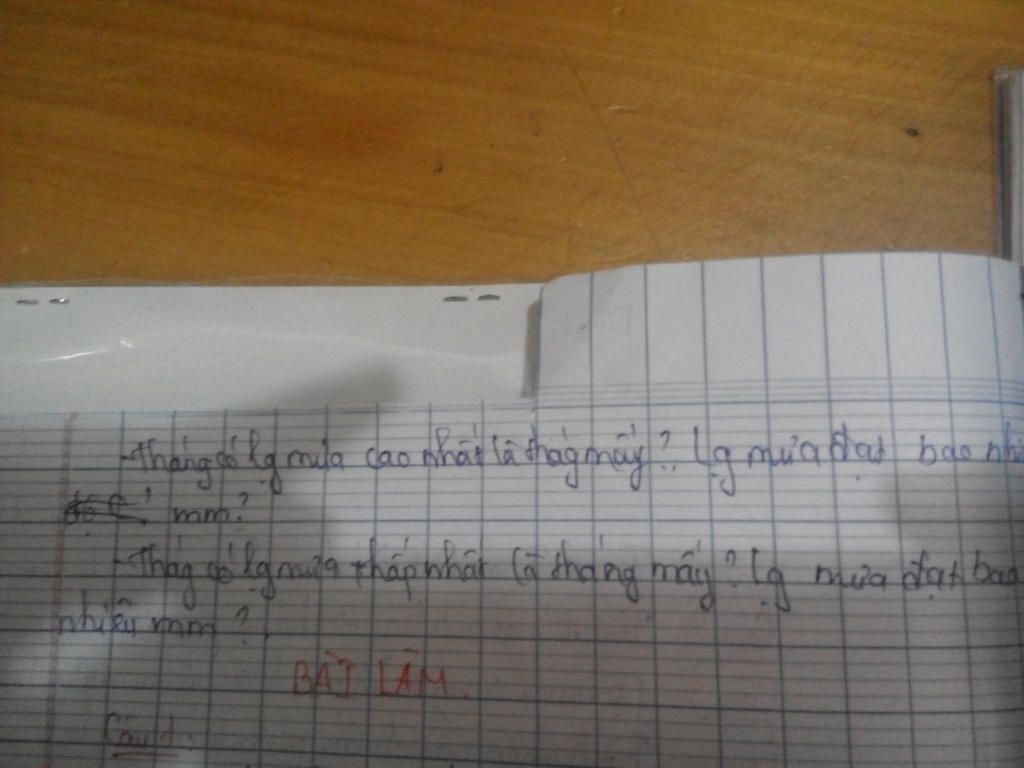 -Tháng có lg mưa cao nhất là thág mấy? Lg mưa đạt bao
mm?
-Thág có lg mưa thấp nhất là tháng mấy? Lg mưa đạt bao
nhiêu mm?
BÀI LÀM.
Câu 1.